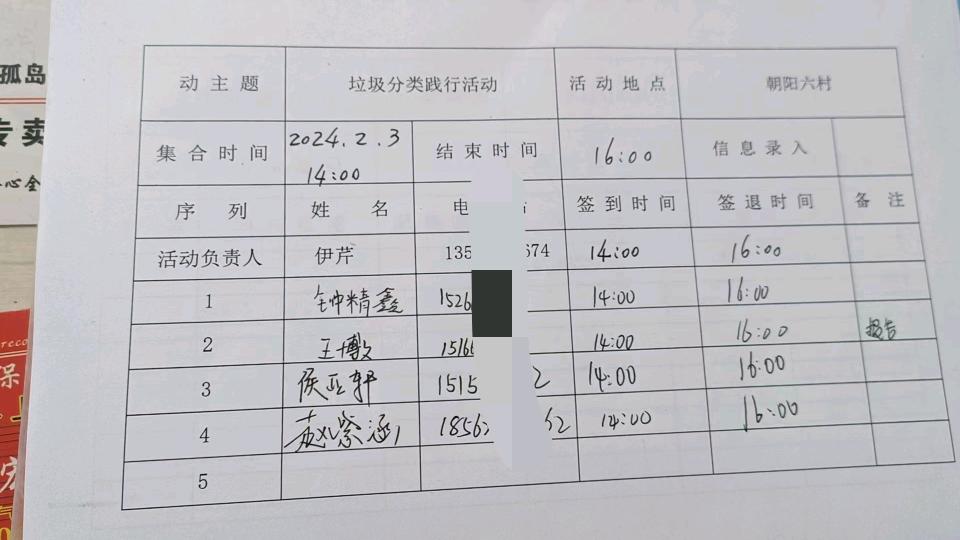 孤岛
专卖
心全
动主题 垃圾分类践行活动 活动地点 朝阳六村
集合时间 2024.2.3 14:00 结束时间 16:00 信息录入
序列 姓名 电 签到时间 签退时间 备注
活动负责人 伊芹 135 674 14:00 16:00
1 钟精鑫 1526 14:00 16:00
2 王博文 1516 14:00 16:00 报告
3 侯亚轩 1515 2 14:00 16:00
4 赵紫涵 1856 62 14:00 16:00
5
保
宏